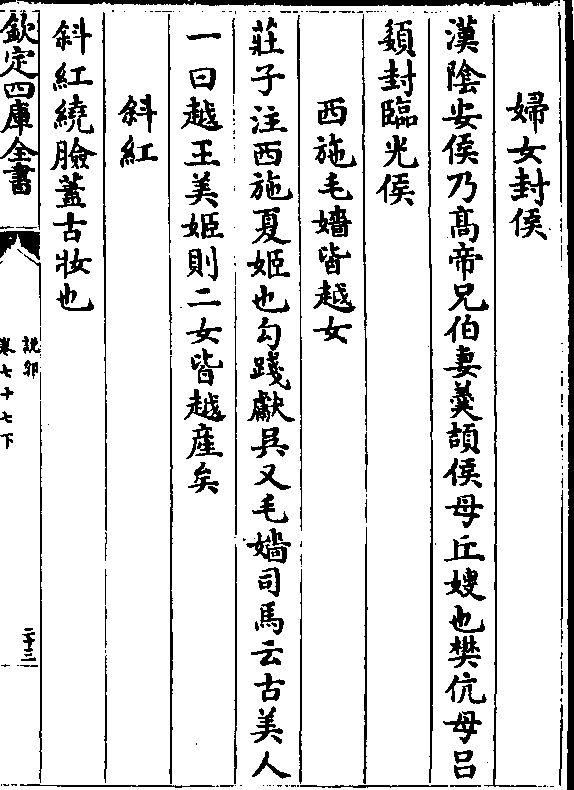 婦女封侯
漢隂安侯乃髙帝兄伯妻羮頡侯母丘嫂也樊伉母吕
䫌封臨光侯
西施毛嬙皆越女
莊子注西施夏姬也勾踐獻吳又毛嬙司馬云古美人
一曰越王美姬則二女皆越産矣
斜紅
斜紅繞臉蓋古妝也
欽定四庫全書
說郛
卷七十七下
二十三